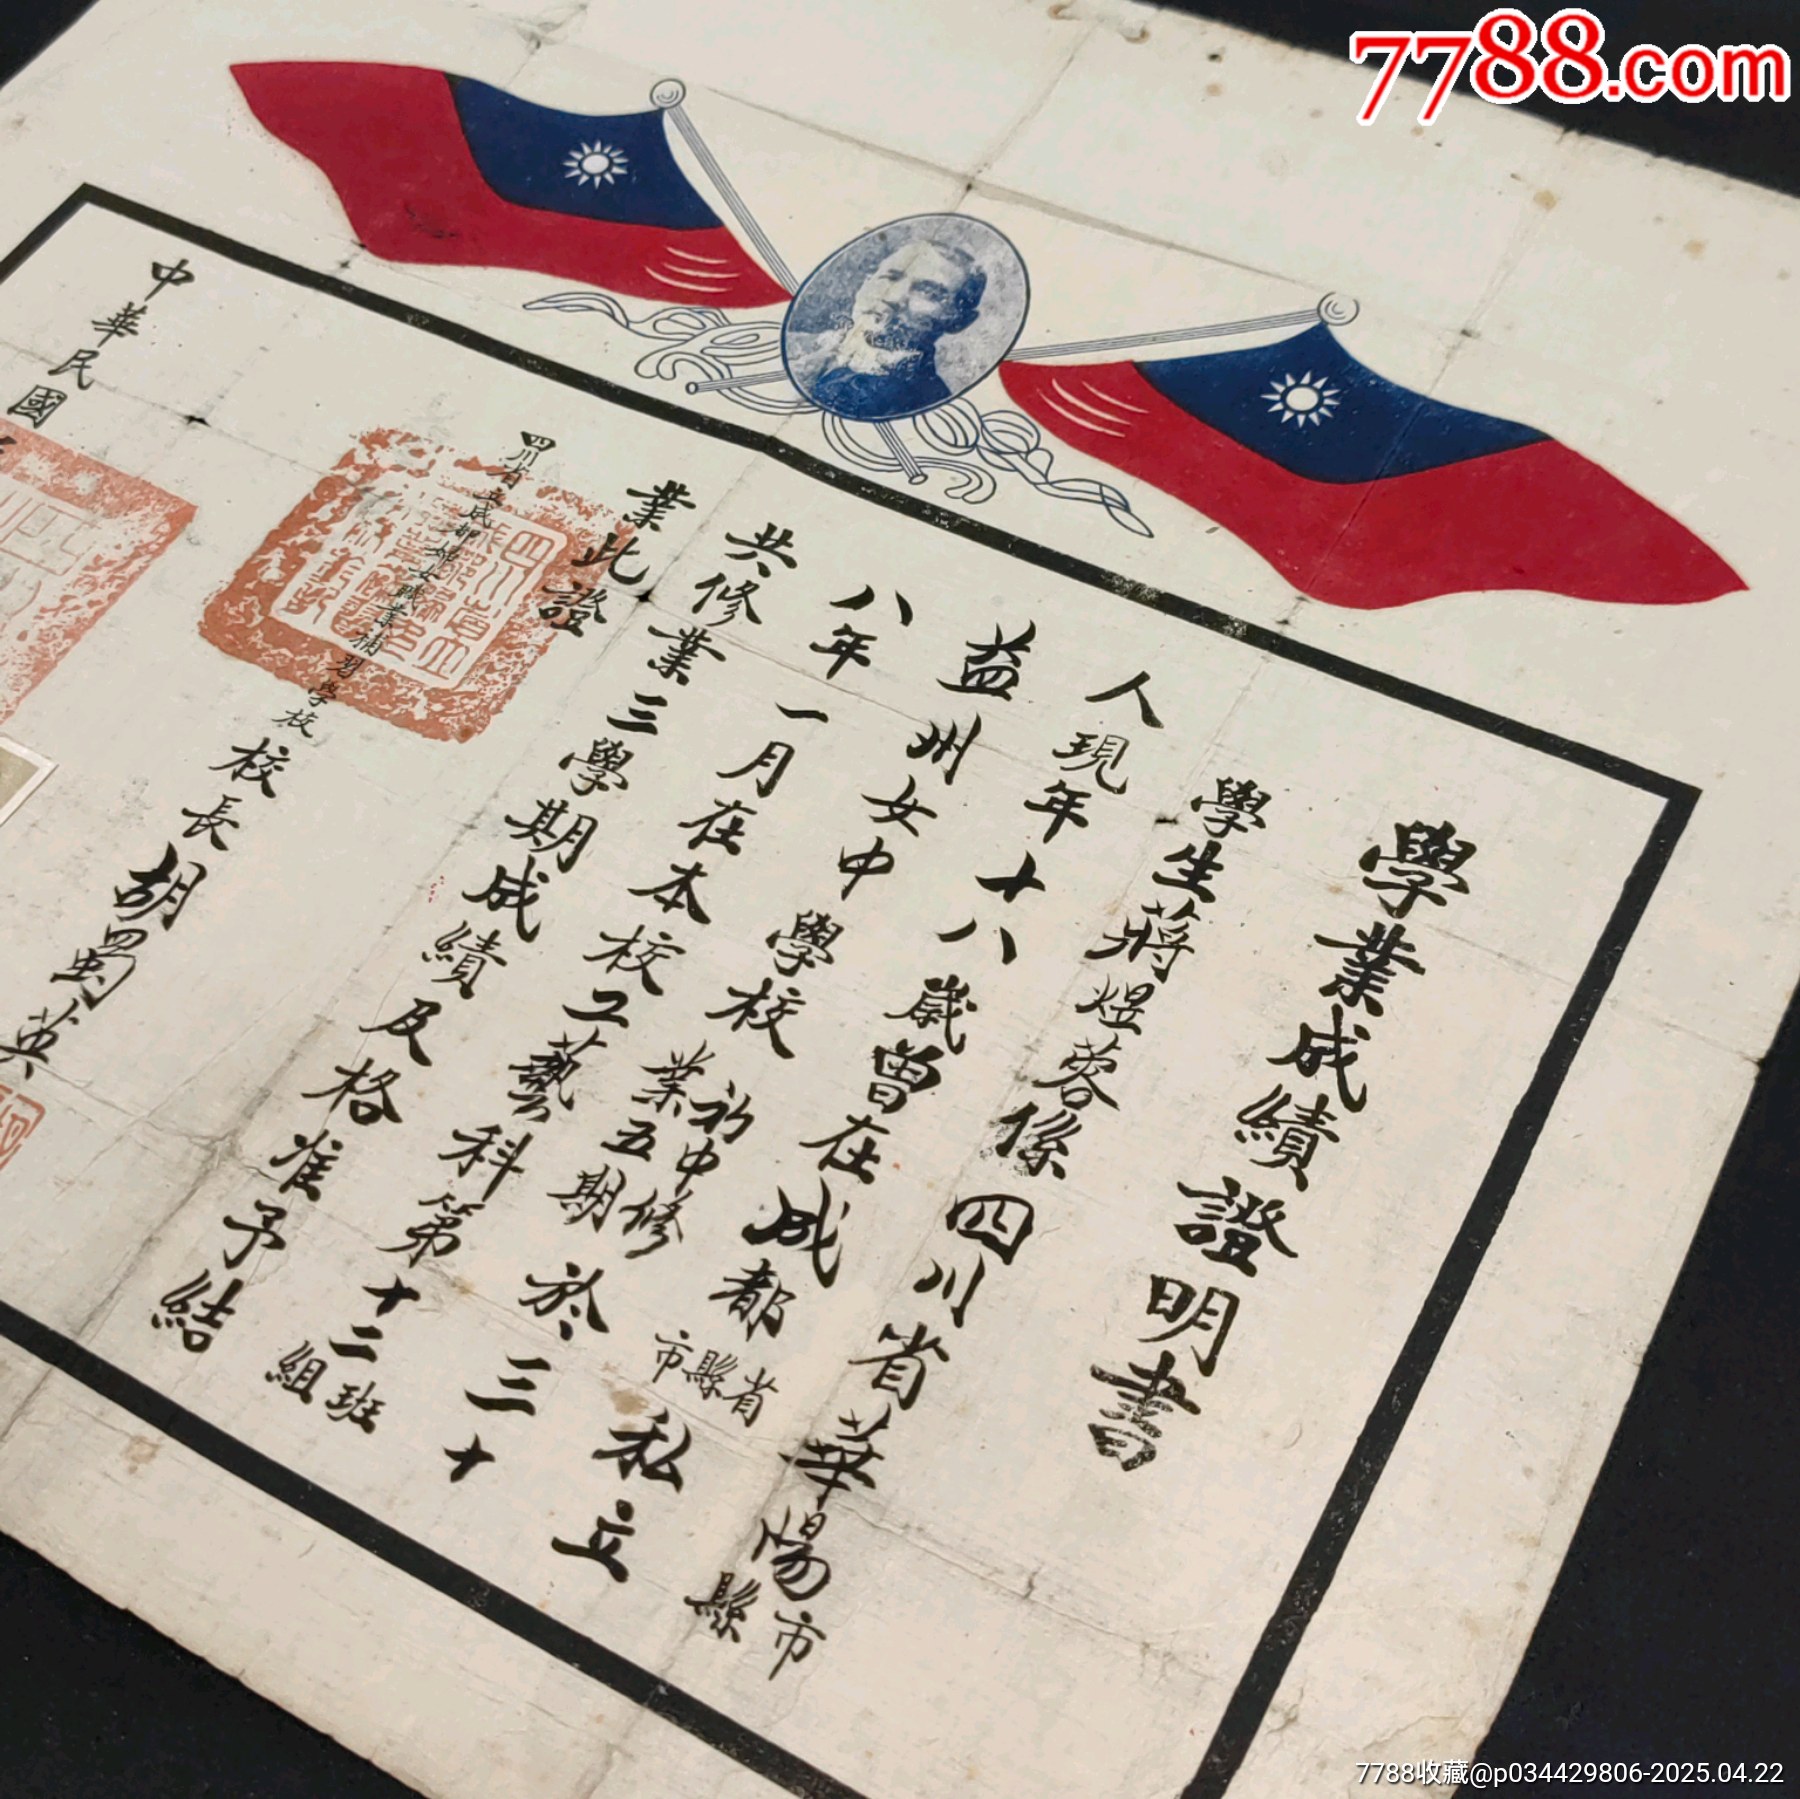 7788.com
學業成績證明書
學生蔣煜蓉係四川省華陽市縣
人現年十八歲曾在成都省縣市私立
益州女中學校初中修業五期於三十
八年一月在本校工藝科第十二班組
共修業三學期成績及格准予結
業此證
四川省立成都婦女職業補習學校校長胡蜀英
中華民國
7788收藏@p034429806-2025.04.22